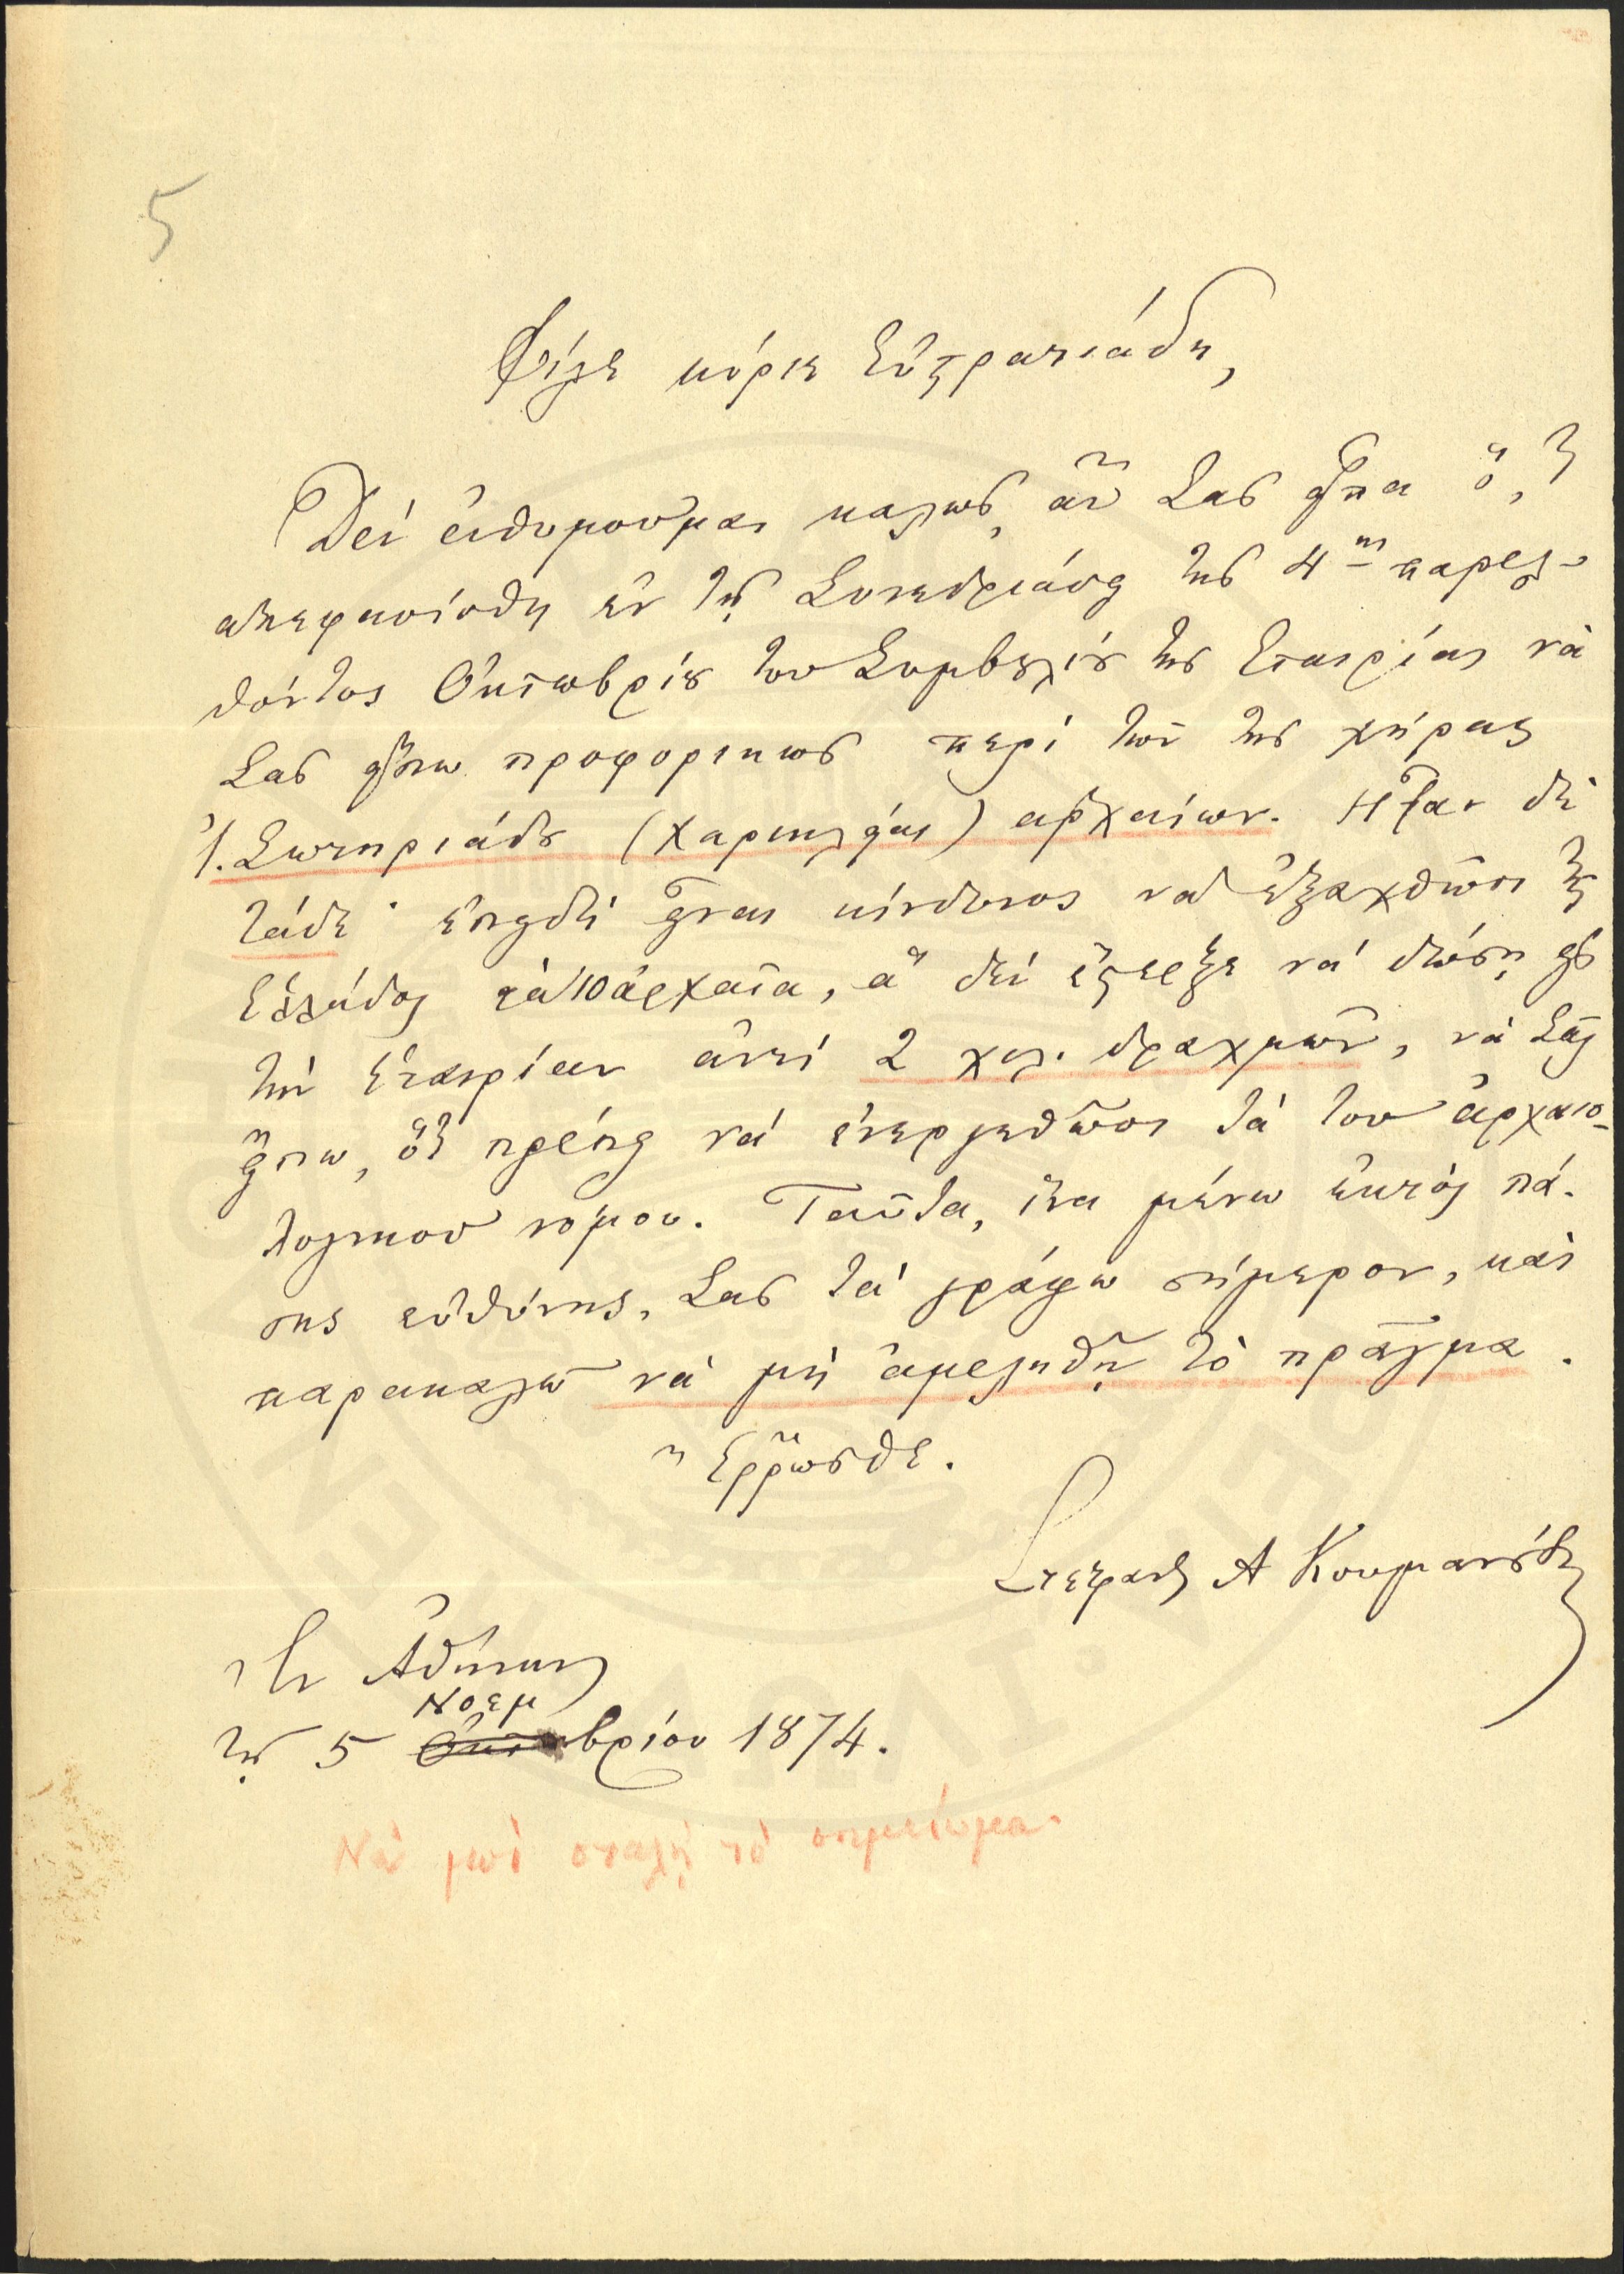 5
Φίλε κύριε Εὐστρατιάδη,
Δὲν ἐνθυμοῦμαι καλῶς, ἂν Σᾶς εἶπα ὅ,τι
ἀπεφασίσθη ἐν τῇ Συνεδριάσει τῆς 4ης παρελ-
θόντος Ὀκτωβρίου τοῦ Συμβουλίου τῆς Ἑταιρίας νὰ
Σᾶς εἴπω προφορικῶς περὶ τῶν τῆς χήρας
Ἰ. Σωτηριάδου (Χαρικλείας) ἀρχαίων. Ἦσαν δὲ
τάδε· ἐπειδὴ εἶναι κίνδυνος νὰ ἐξαχθῶσι ἐξ
Ἑλλάδος τὰ 10 ἀρχαῖα, ἃ δὲν ἔστερξε νὰ δώσῃ εἰς
τὴν Ἑταιρίαν ἀντὶ 2 χιλ. δραχμῶν, νὰ Σᾶς
εἴπω, ὅτι πρέπει νὰ ἐνεργηθῶσι τὰ τοῦ ἀρχαιο-
λογικοῦ νόμου. Ταῦτα, ἵνα μένω ἐκτὸς πά-
σης εὐθύνης, Σᾶς τὰ γράφω σήμερον, καὶ
παρακαλῶ νὰ μὴ ἀμεληθῇ τὸ πρᾶγμα.
Ἔρρωσθε.
Στέφανος Α Κουμανούδης
Ἐν Ἀθήναις
Νοεμ
τῇ 5 Ὀκτωβρίου 1874.
Νὰ μοὶ σταλῇ τὸ σημείωμα.